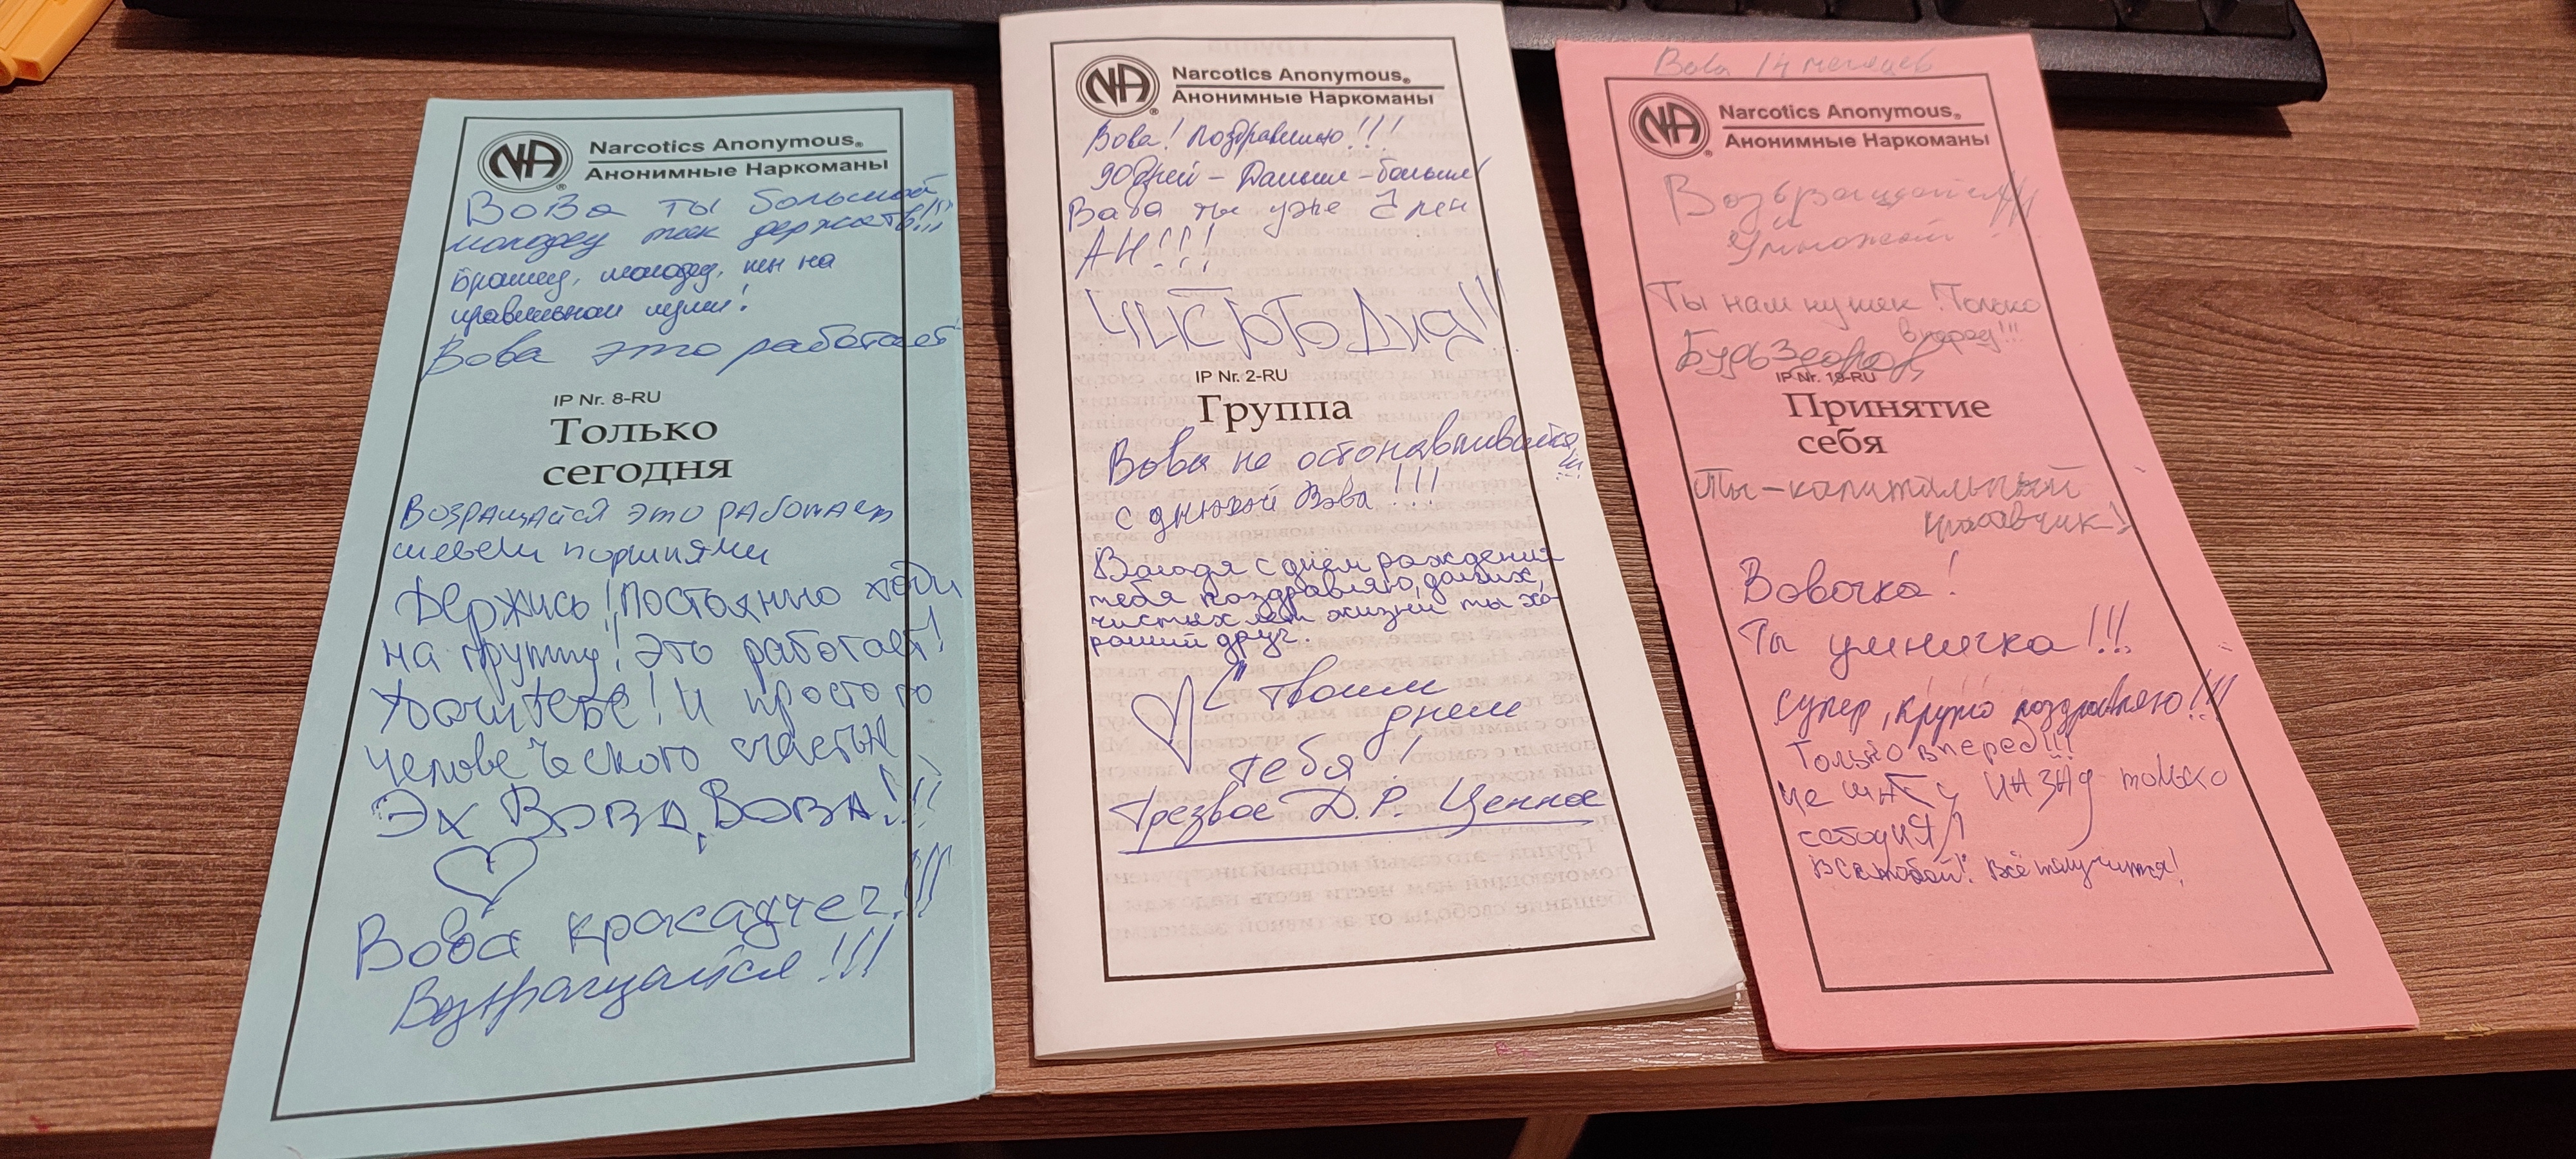 Narcotics Anonymous®
Анонимные Наркоманы
Вова ты большой
молодец так держать!!!
Братец, молодец, ты на
правильном пути!
Вова это работает
IP Nr. 8-RU
Только
сегодня
Возращайся это работает
шевели поршнями
Держись! Постоянно ходи
на группы! Это работает!
Удачи тебе! И простого
человеческого счастья
Эх Вова, Вова!!!
Вова красаучег!!!
Возвращайся!!!
Narcotics Anonymous®
Анонимные Наркоманы
Вова! Поздравляю!!!
90 дней - Дальше - больше
Вова ты уже член
АН!!!
Чистого Дня!!
IP Nr. 2-RU
Группа
Вова не останавливайся
!!!
с днюхой Вова!!!
Володя с днём рождения
тебя поздравляю, долгих,
чистых лет жизни ты хо-
роший друг.
С твоим
днем
тебя!
Трезвое Д.Р. Ценное
Вова 14 месяцев
Narcotics Anonymous®
Анонимные Наркоманы
Возвращайся!!!
и
Умножай!!
Ты нам нужен! Только
вперед!!!
Будь Здоров,
IP Nr. 19-RU
Принятие
себя
Ты - капитальный
красавчик!
Вовочка!
Ты умничка!!!
Супер, круто поздравляю!!!
Только вперед!!!
Не шагу назад только
сегодня!
Всё получится!